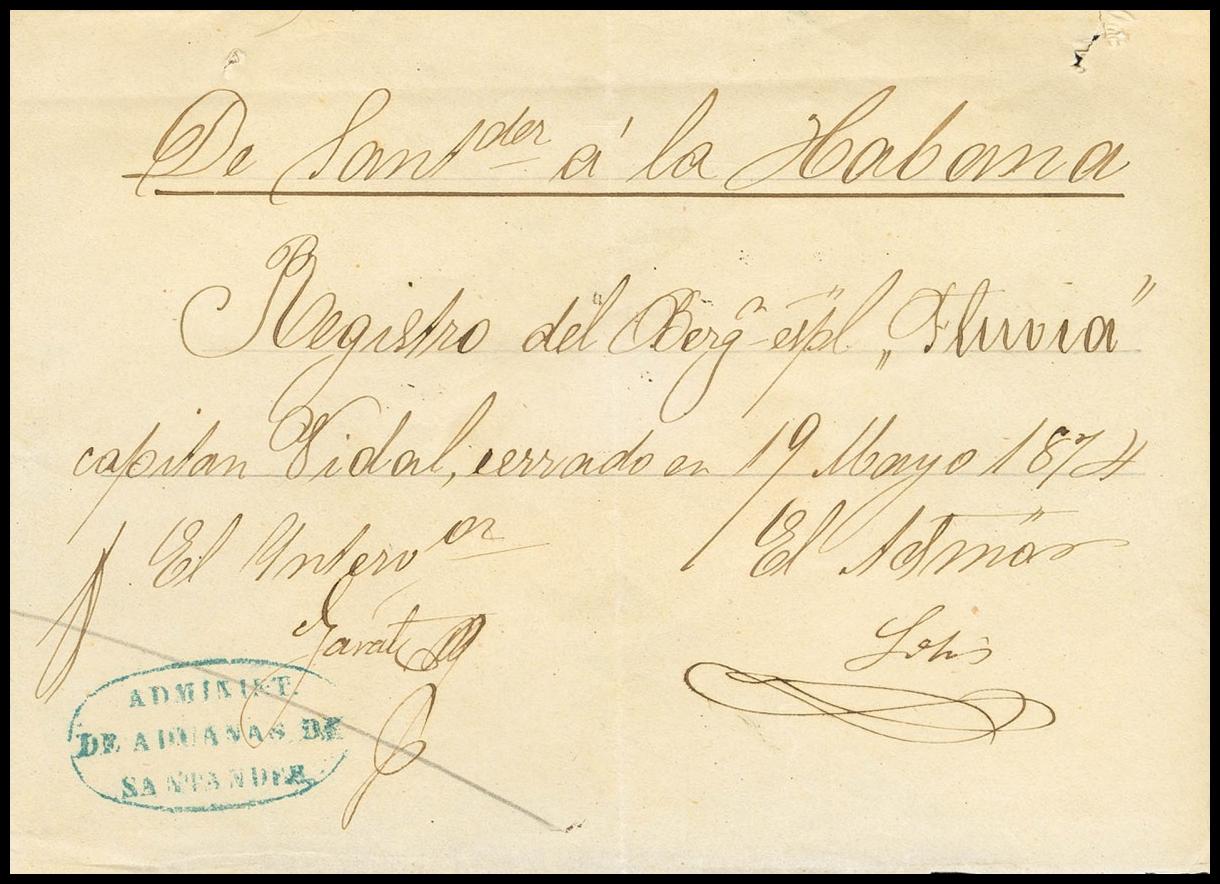 De Sant^der á la Habana
Registro del Berg^n esp̈l „Fluviá"
capitan Vidal, cerrado en 19 Mayo 1874
El Interv^or El Admõr
ADMINIST.
DE ADUANAS DE
SANTANDER